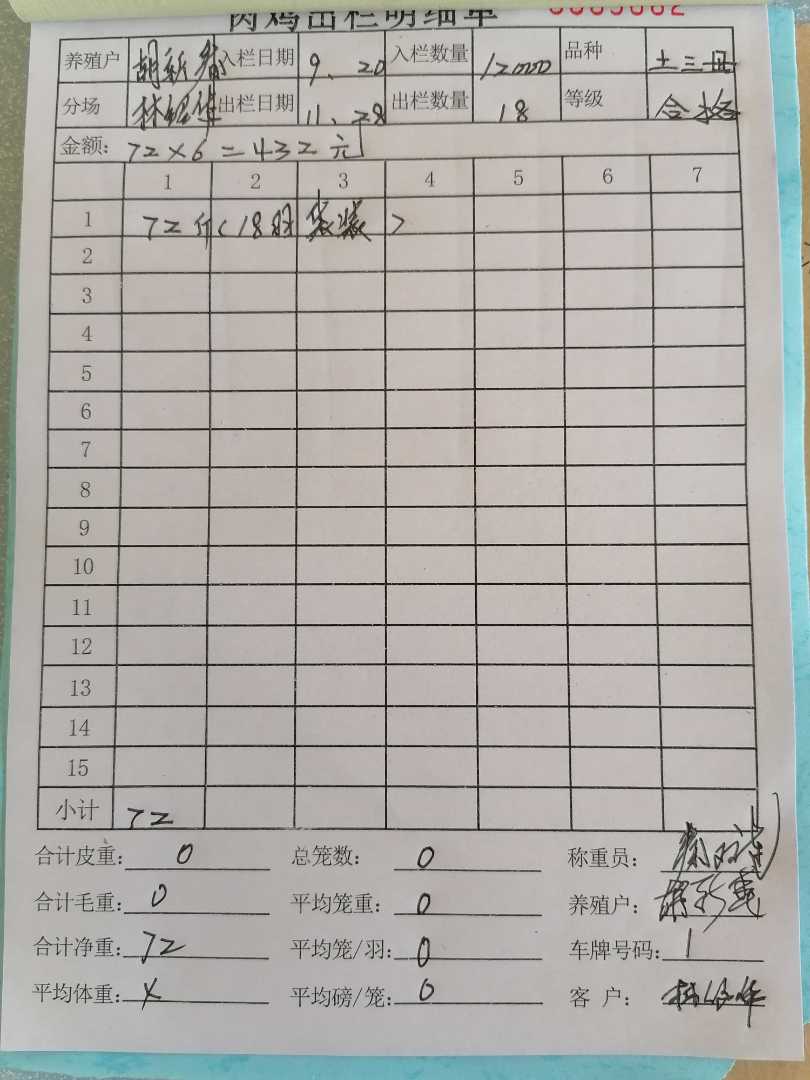 肉鸡出栏明细单
养殖户 胡新春 入栏日期 9、20 入栏数量 12000 品种 土三册
分场 出栏日期 11、28 出栏数量 18 等级 合格
金额: 72×6=432元
1 2 3 4 5 6 7
1 72斤(18羽 袋装)
2
3
4
5
6
7
8
9
10
11
12
13
14
15
小计 72
合计皮重: 0 总笼数: 0 称重员:
合计毛重: 0 平均笼重: 0 养殖户:
合计净重: 72 平均笼/羽: 0 车牌号码: 1
平均体重: 平均磅/笼: 0 客 户: